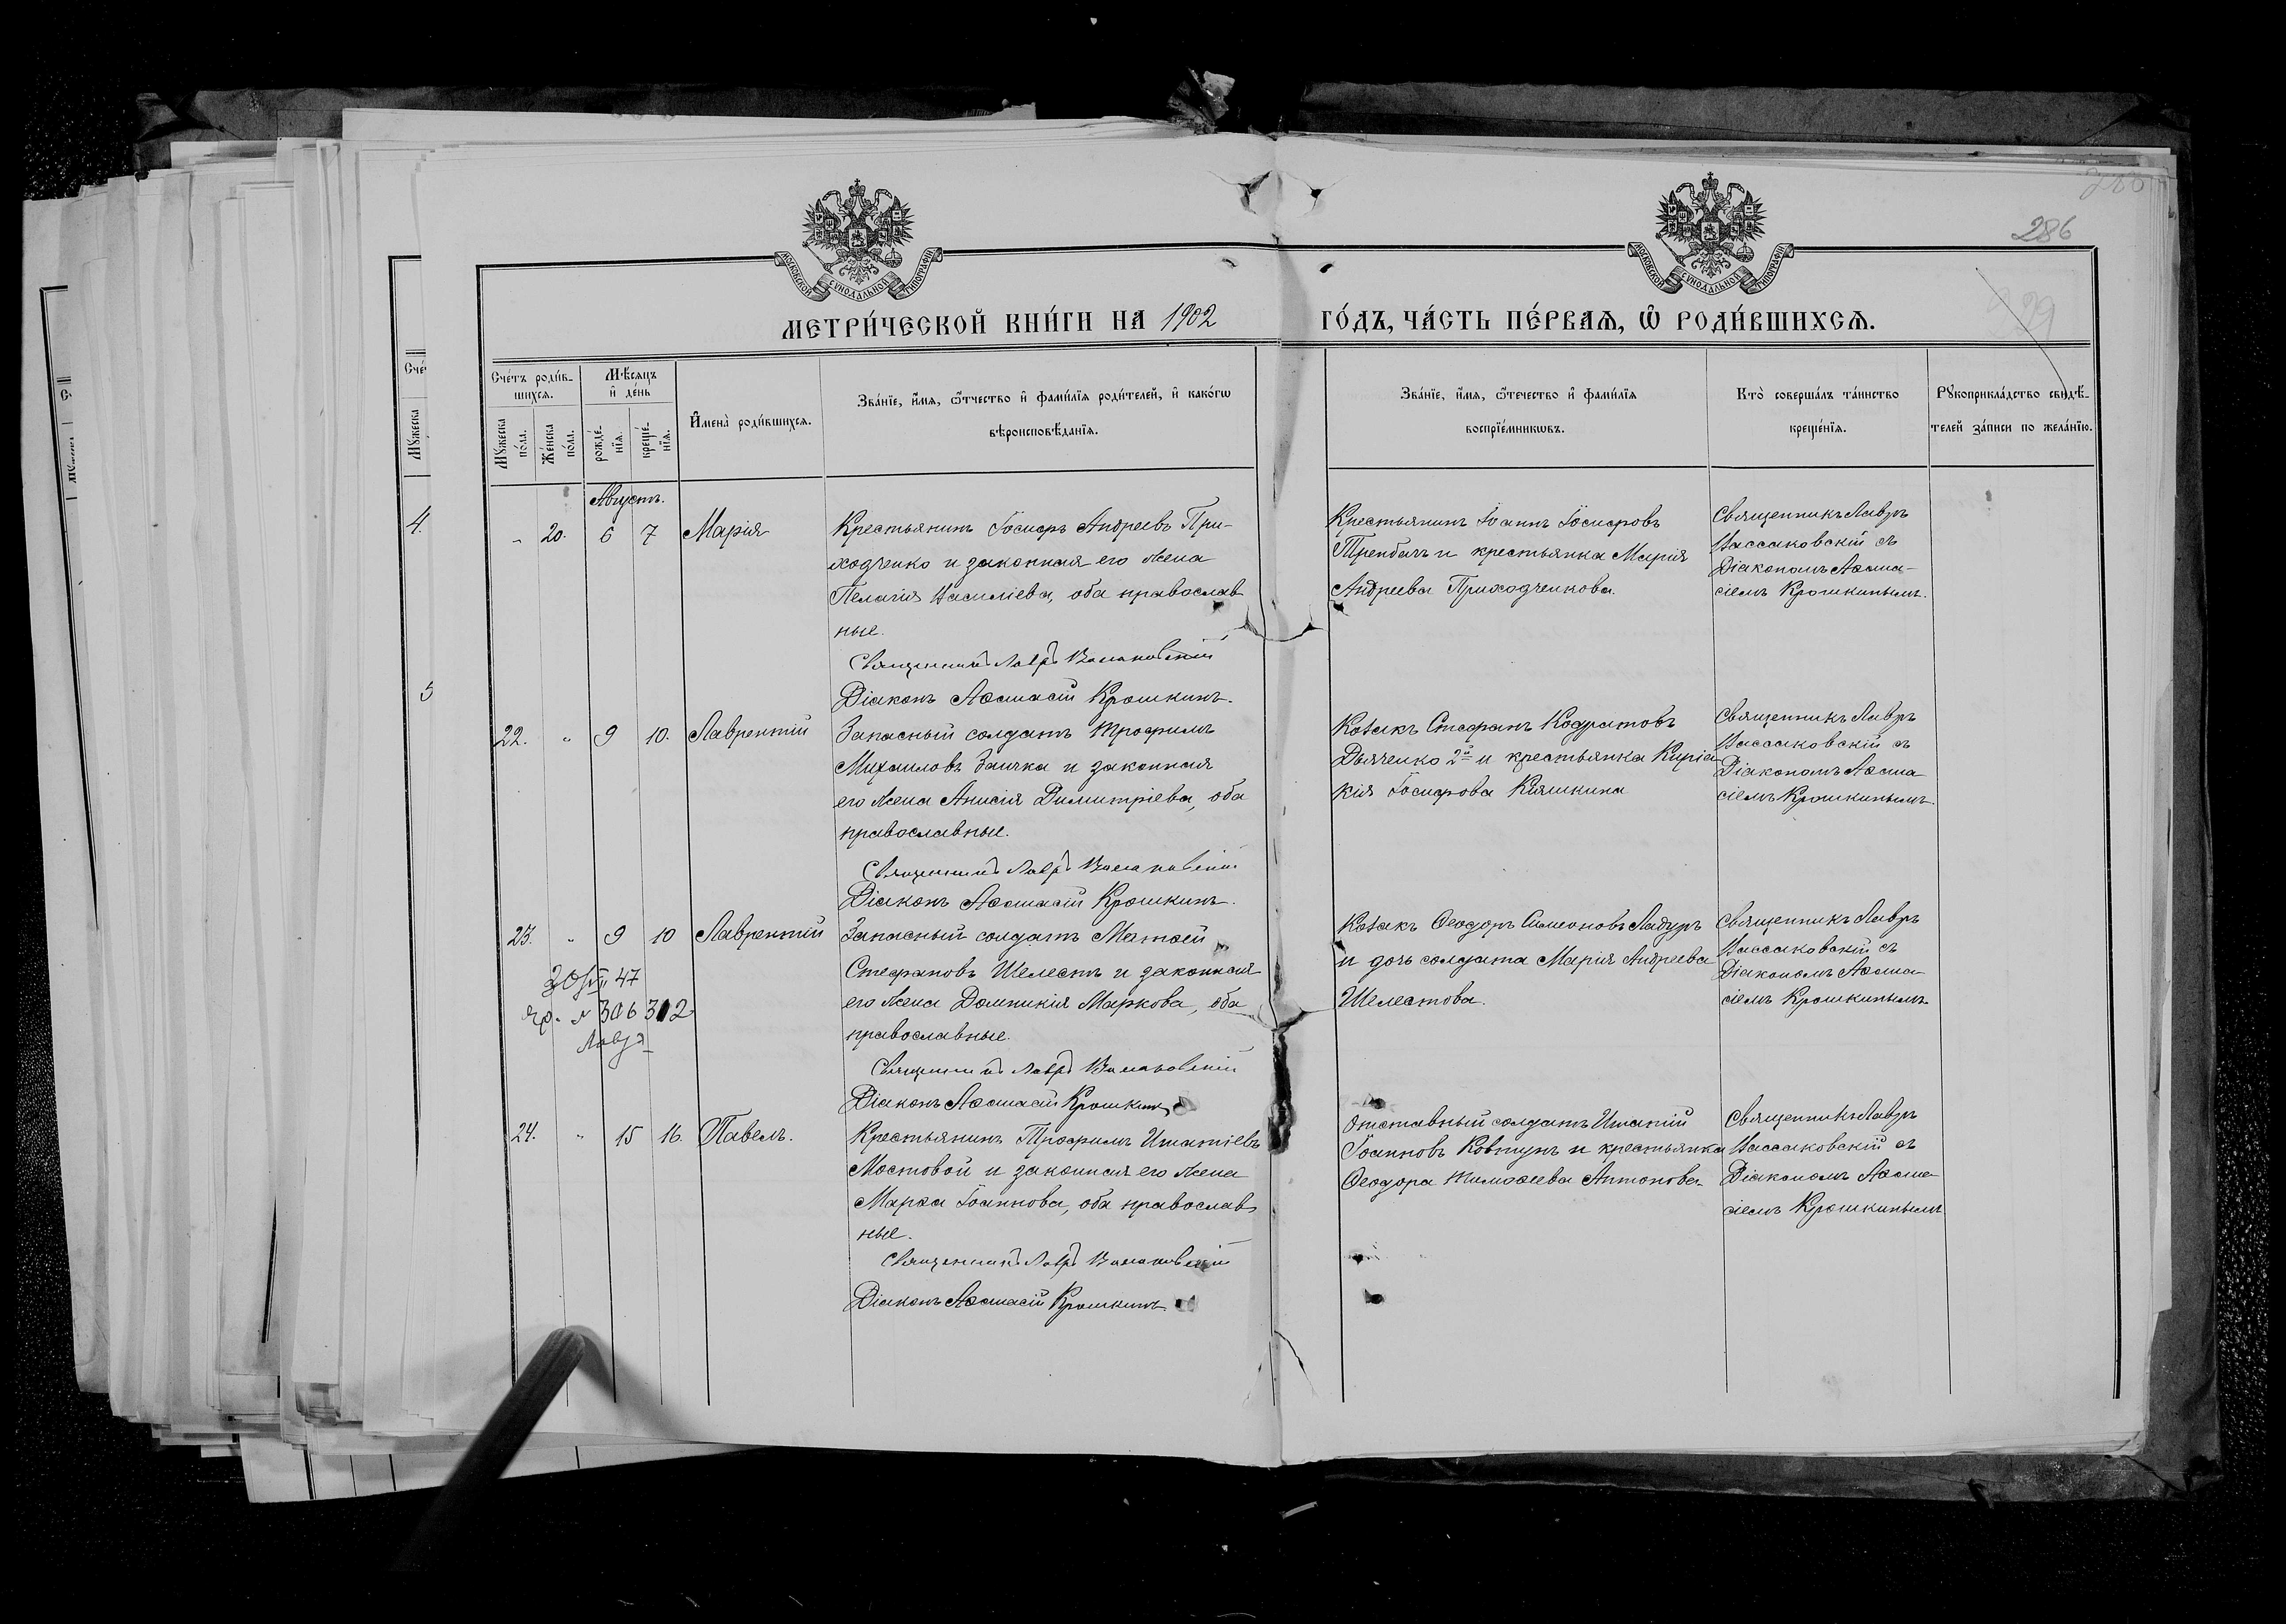 286
МОСКОВСКОЙ СѴНОДАЛЬНОЙ ТИПОГРАФІИ
МОСКОВСКОЙ СѴНОДАЛЬНОЙ ТИПОГРАФІИ
МЕТРИ́ЧЕСКОЙ КНИ́ГИ НА 1902 ГО́ДЪ, ЧА́СТЬ ПЕ́РВАѦ, Ѽ РОДИ́ВШИХСѦ.
Сче́тъ роди́в-
шихсѧ.
Мꙋ́жеска
по́ла.
Же́нска
по́ла.
Мѣ́сѧцъ
и҆ де́нь
рожде́-
нїѧ.
креще́-
нїѧ.
И҆мена̀ роди́вшихсѧ.
Зва́нїе, и҆́мѧ, ѻ҆́тчество и҆ фами́лїѧ роди́телей, и҆ како́гѡ
вѣроисповѣ́данїѧ.
Зва́нїе, и҆́мѧ, ѻ҆́течество и҆ фами́лїѧ
воспрїе́мникѡвъ.
Кто̀ соверша́лъ та́инство
креще́нїѧ.
Рꙋкоприкла́дство свидѣ́-
телей за́писи по жела́нїю.
Августъ.
" 20. 6 7 Марія
Крестьянинъ Іосифъ Андреевъ При-
ходченко и законная его жена
Пелагія Василіева, оба православ
ные.
Священникъ Лавръ Вассаковскій
Діаконъ Аѳанасій Крошкинъ.
Крестьянинъ Іоаннъ Іосифовъ
Трембачъ и крестьянка Марія
Андреева Приходченкова.
Священникъ Лавръ
Вассаковскій съ
Діакономъ Аѳана-
сіемъ Крошкинымъ.
22. " 9 10. Лаврентій
Запасный солдатъ Трофимъ
Михаиловъ Заичка и законная
его жена Анисія Димитріева, оба
православные.
Священникъ Лавръ Вассаковскій
Діаконъ Аѳанасій Крошкинъ.
Козакъ Стефанъ Кодратовъ
Дьяченко 2й и крестьянка Киріа
кія Іосифова Кияшкина
Священникъ Лавръ
Вассаковскій съ
Діакономъ Аѳана
сіемъ Крошкинымъ.
23. " 9 10 Лаврентій
47
306312
Запасный солдатъ Матѳей
Стефановъ Шелестъ и законная
его жена Домникія Маркова, оба
православные.
Священникъ Лавръ Вассаковскій
Діаконъ Аѳанасій Крошкинъ
Козакъ Ѳеодоръ Симеоновъ Ладуръ
и дочь солдата Марія Андреева
Шелестова.
Священникъ Лавръ
Вассаковскій съ
Діакономъ Аѳана-
сіемъ Крошкинымъ
24. " 15 16. Павелъ.
Крестьянинъ Трофимъ Ипатіевъ
Мостовой и законная его жена
Марѳа Іоаннова, оба православ
ные.
Священникъ Лавръ Вассаковскій
Діаконъ Аѳанасій Крошкинъ
Отставный солдатъ Ипатій
Іоанновъ Ковтунъ и крестьянка
Ѳеодора Тимоѳеева Антонова
Священникъ Лавръ
Вассаковскій съ
Діакономъ Аѳана-
сіемъ Крошкинымъ